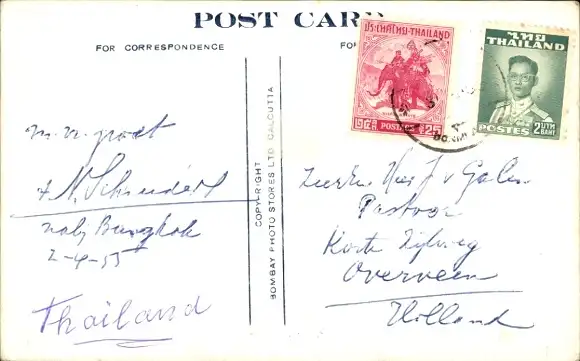 POST CARD
FOR CORRESPONDENCE
FO
COPYRIGHT
BOMBAY PHOTO STORES LTD CALCUTTA
ประเทศไทย-THAILAND
POSTAGE 25
ไทย
THAILAND
POSTES 2 บาท BAHT
m. vr. groet
nabij Bangkok
2-4-55
Thailand
v Galen
Pastoor
Korte Zijlweg
Overveen
Holland